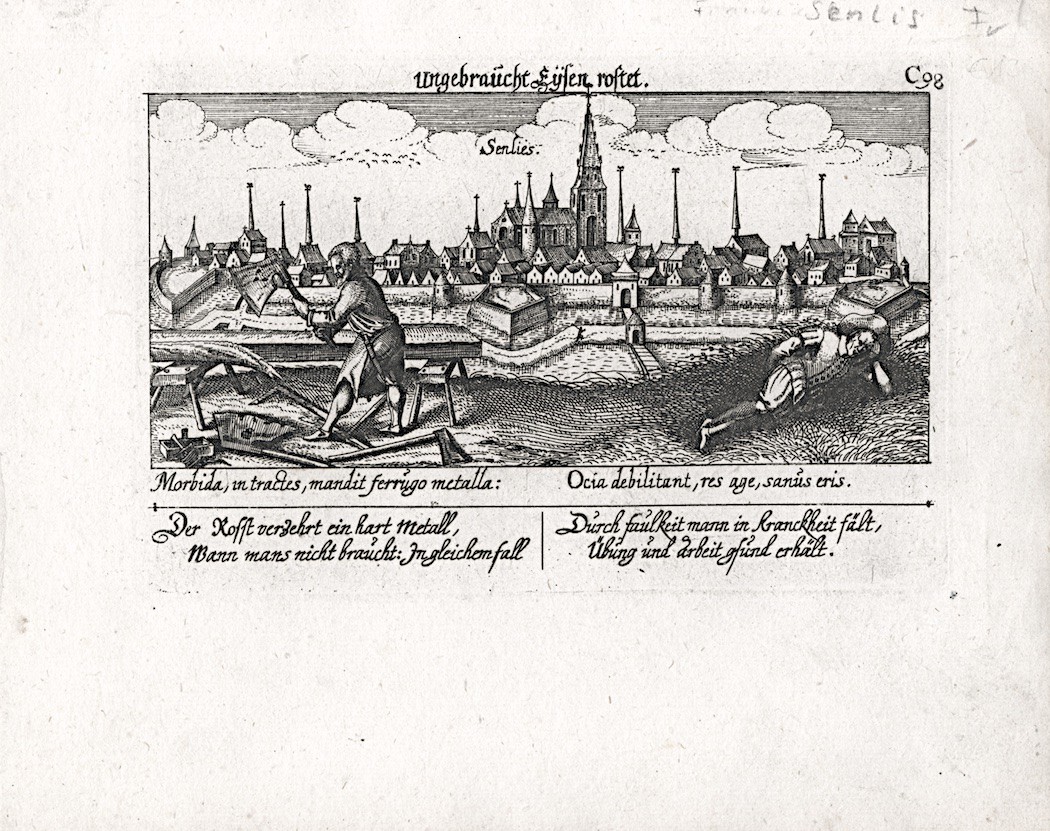 Senlis
Ungebraucht Eÿsen rostet.
C98
Senlies.
Morbida, in tractes, mandit ferrugo metalla:
Ocia debilitant, res age, sanus eris.
Der Rosst verzehrt ein hart Metall,
Wann mans nicht braucht: In gleichem fall
Durch faulkeit mann in kranckheit fält,
Übung und arbeit gsund erhält.